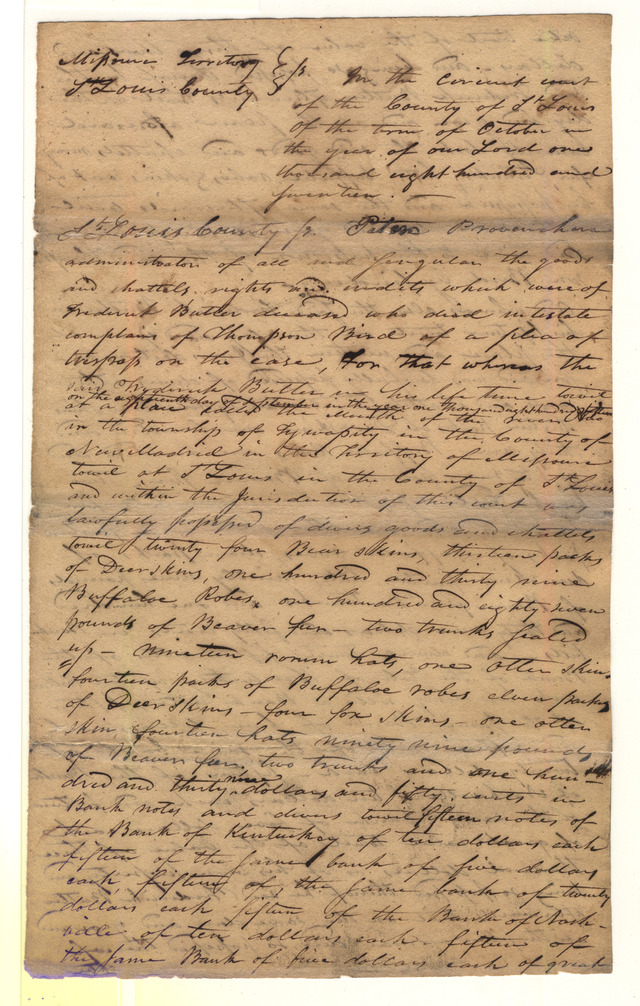 Missouri Territory } ss.
St. Louis County }
In the circuit court
of the County of St. Louis
of the term of October in
the year of our Lord one
thousand eight hundred and
seventeen. —
St. Louis County ss. Peter Provenchere
administrator of all and singular the goods
and chattels rights and credits which were of
Frederick Butler deceased who died intestate
complains of Thompson Bird of a plea of
trespass on the case, For that whereas the
said Frederick Butler in his life time towit
on the eighteenth day of September in the year one thousand eight hundred &
at a place called the mouth of the river
in the township of Tywapity in the County of
New Madrid in the Territory of Missouri
towit at St. Louis in the County of St. Louis
and within the jurisdiction of this court was
lawfully possessed of divers goods and chattels
towit twenty four Bear skins, thirteen packs
of Deer skins, one hundred and thirty nine
Buffaloe Robes, one hundred and eighty seven
pounds of Beaver fur — two trunks sealed
up — nineteen rorum hats, one otter skin
fourteen packs of Buffaloe robes eleven packs
of Deer skins — four fox skins — one otter
skin fourteen hats ninety nine pounds
of Beaver fur, two trunks and one hun=
dred and thirty nine dollars and fifty cents in
Bank notes and divers towit fifteen notes of
the Bank of Kentuckey of ten dollars each
fifteen of the same bank of five dollars
each, fifteen of the same bank of twenty
dollars each fifteen of the Bank of Nash-
ville of ten dollars each — fifteen of
the same Bank of five dollars each of great